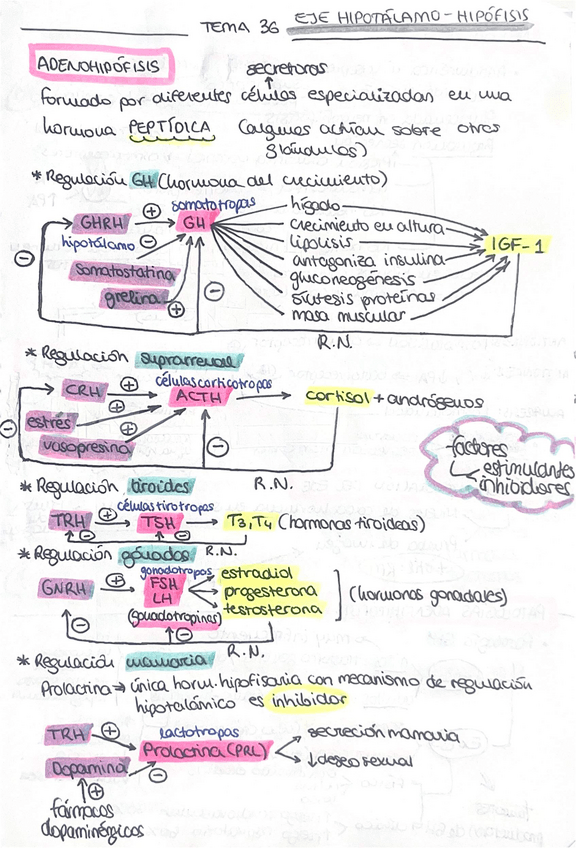 TEMA 36 EJE HIPOTÁLAMO-HIPÓFISIS
ADENOHIPÓFISIS
secretoras
formado por diferentes células especializadas en una
hormona PEPTÍDICA (algunas actúan sobre otras
glándulas)
* Regulación GH (hormona del crecimiento)
somatotropas
GHRH + GH
hipotálamo -
somatostatina
grelina +
hígado
crecimiento en altura
lipolisis
antagoniza insulina
gluconeogénesis
síntesis proteínas
masa muscular
IGF-1
- -
R.N.
* Regulación suprarrenal
células corticotropas
CRH + ACTH → cortisol + andrógenos
estrés +
vasopresina +
- -
R.N.
factores
estimulantes
inhibidores
* Regulación tiroides
células tirotropas
TRH + TSH → T3, T4 (hormonas tiroideas)
- -
R.N.
* Regulación gónadas
gonadotropas
GNRH + FSH
LH
(gonadotropinas)
estradiol
progesterona
testosterona
(hormonas gonadales)
- -
R.N.
* Regulación mamaria
Prolactina → única horm. hipofisaria con mecanismo de regulación
hipotalámico es inhibidor
lactotropas
TRH + Prolactina (PRL)
Dopamina -
secreción mamaria
↓ deseo sexual
+
fármacos
dopaminérgicos